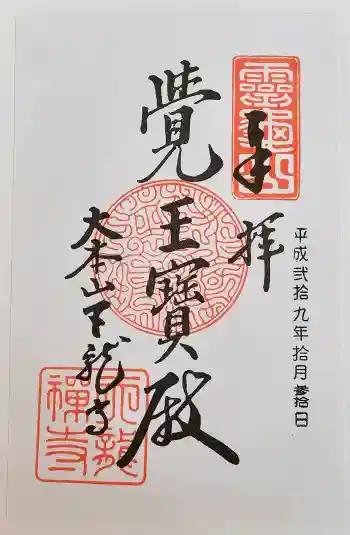 靈龜山
奉拝
平成弐拾九年拾月参拾日
覺王寶殿
大本山天龍寺
天龍
禪寺